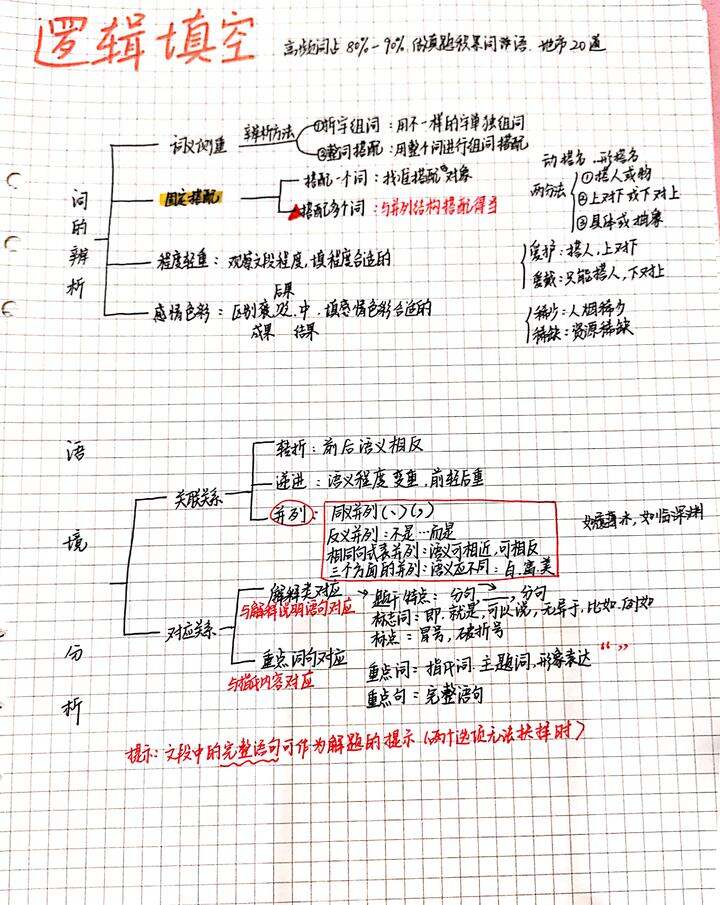 逻辑填空
高频词占80%-90%，做真题积累词语 地市20道
词的辨析
词义侧重 辨析方法 ①拆字组词：用不一样的字单独组词
②整词搭配：用整个词进行组词搭配
固定搭配 搭配一个词：找准搭配对象
搭配多个词：与并列结构搭配得当
动搭名 形搭名
两分法 ①搭人或物
②上对下或下对上
③具体或抽象
程度轻重：观察文段程度，填程度合适的
爱护：搭人，上对下
爱戴：只能搭人，下对上
后果
感情色彩：区别褒、贬、中，填感情色彩合适的
成果 结果
稀少：人烟稀少
稀缺：资源稀缺
语境分析
关联关系
转折：前后语义相反
递进：语义程度变重，前轻后重
并列：同义并列（、）（，）
反义并列：不是…而是
相同句式表并列：语义可相近，可相反
三个方面的并列：语义应不同：白、富、美
如履薄冰，如临深渊
对应关系
解释类对应 → 题干特点：分句，____，分句
与解释说明语句对应
标志词：即，就是，可以说，无异于，比如，例如
标点：冒号，破折号
重点词句对应
与指代内容对应
重点词：指代词、主题词，形象表达“ ”
重点句：完整语句
提示：文段中的完整语句可作为解题的提示（两个选项无法抉择时）